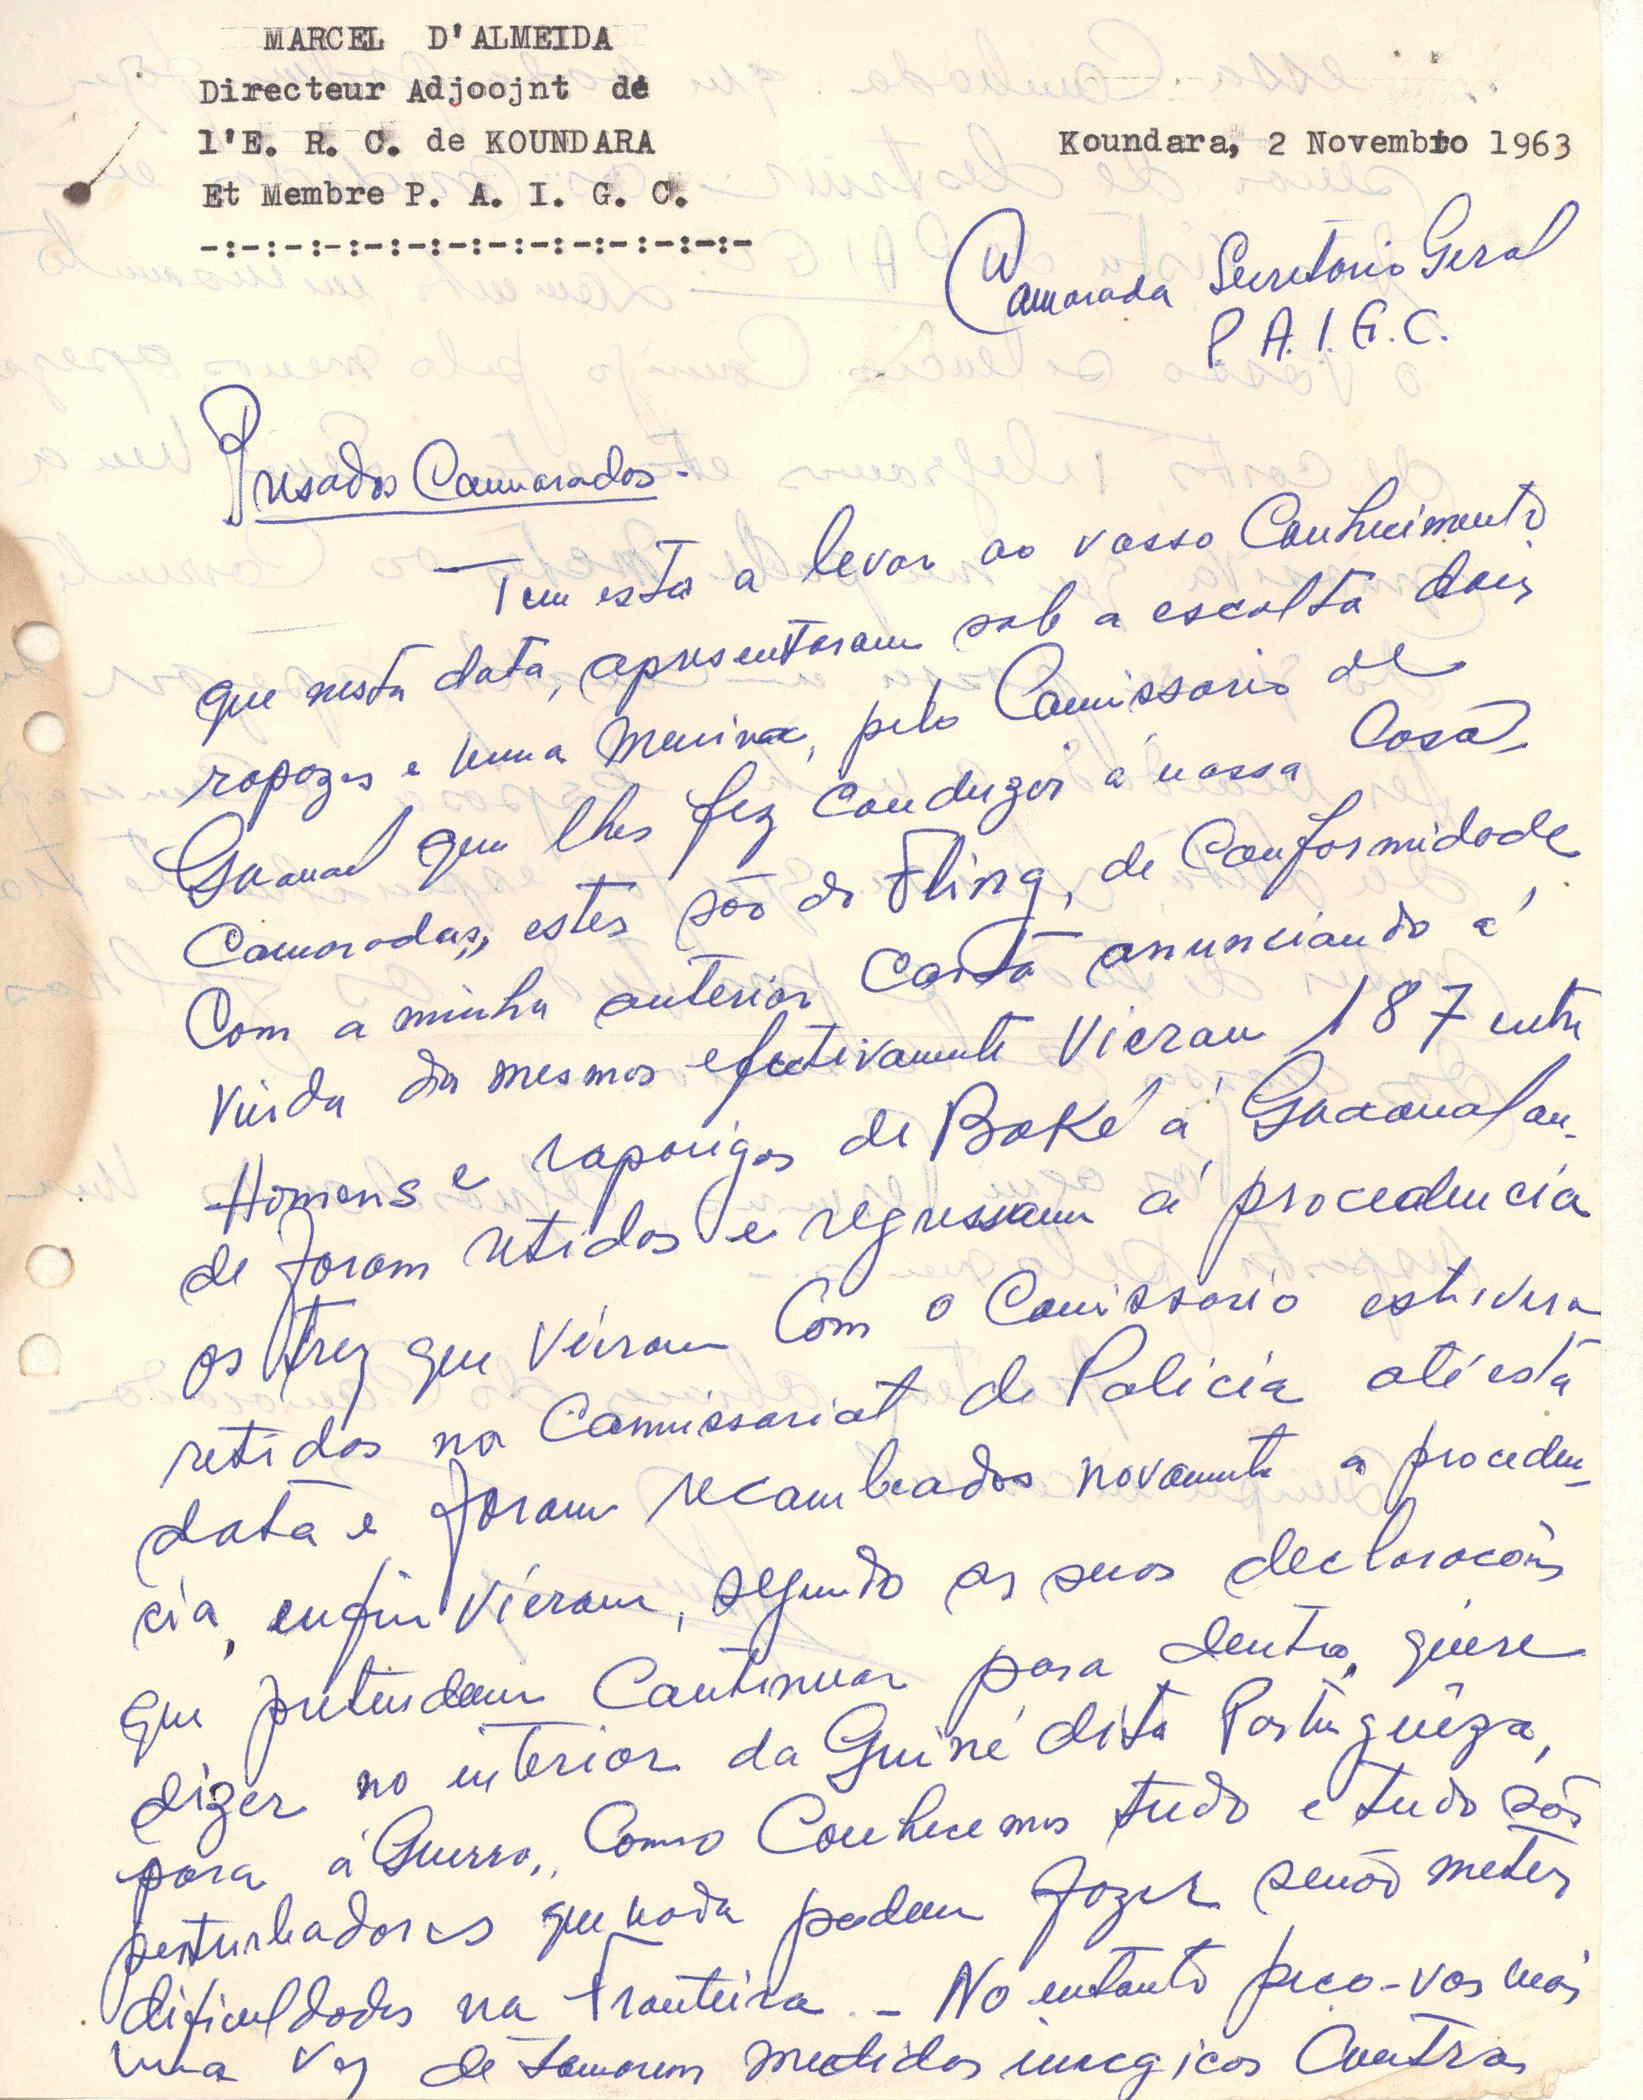 MARCEL D'ALMEIDA
Directeur Adjoojnt de
l'E. R. C. de KOUNDARA
Et Membre P. A. I. G. C.
-:-:-:-:-:-:-:-:-:-:-:-:-:-
Koundara, 2 Novembro 1963
Camarada Secretario Geral
P. A. I. G. C.
Presados Camarados -
Tem esta a levar ao vosso Conhecimento
que nesta data, apresentaram sob a escolta dois
rapazes e uma menina, pelo Comissario de
Guaual que lhes fez conduzir á nossa Casa,
Camaradas, estes são do Fling, de Conformidade
Com a minha anterior Carta anunciando á
vinda dos mesmos efectivamente Vieram 187 entre
Homens e raparigas de Boké á Guaoual on-
de foram retidos e regressam á procedencia
os trez que vieram Com o Comissario estivera
retidos no Commissariat de Policia até esta
data e foram recambeados novamente a proceden-
cia, enfin Vieram, segundo as suas declaracões
que pretendem Continuar para dentro, quere
dizer no interior da Guiné dita Portugûeza,
para á Guerra, Como Conhecemos tudo e tudo são
perturbadores que nada podem fazer senão meter
dificuldades na Fronteira - No entanto peço-vos mais
uma vez de tomarem medidas inergicas Contra